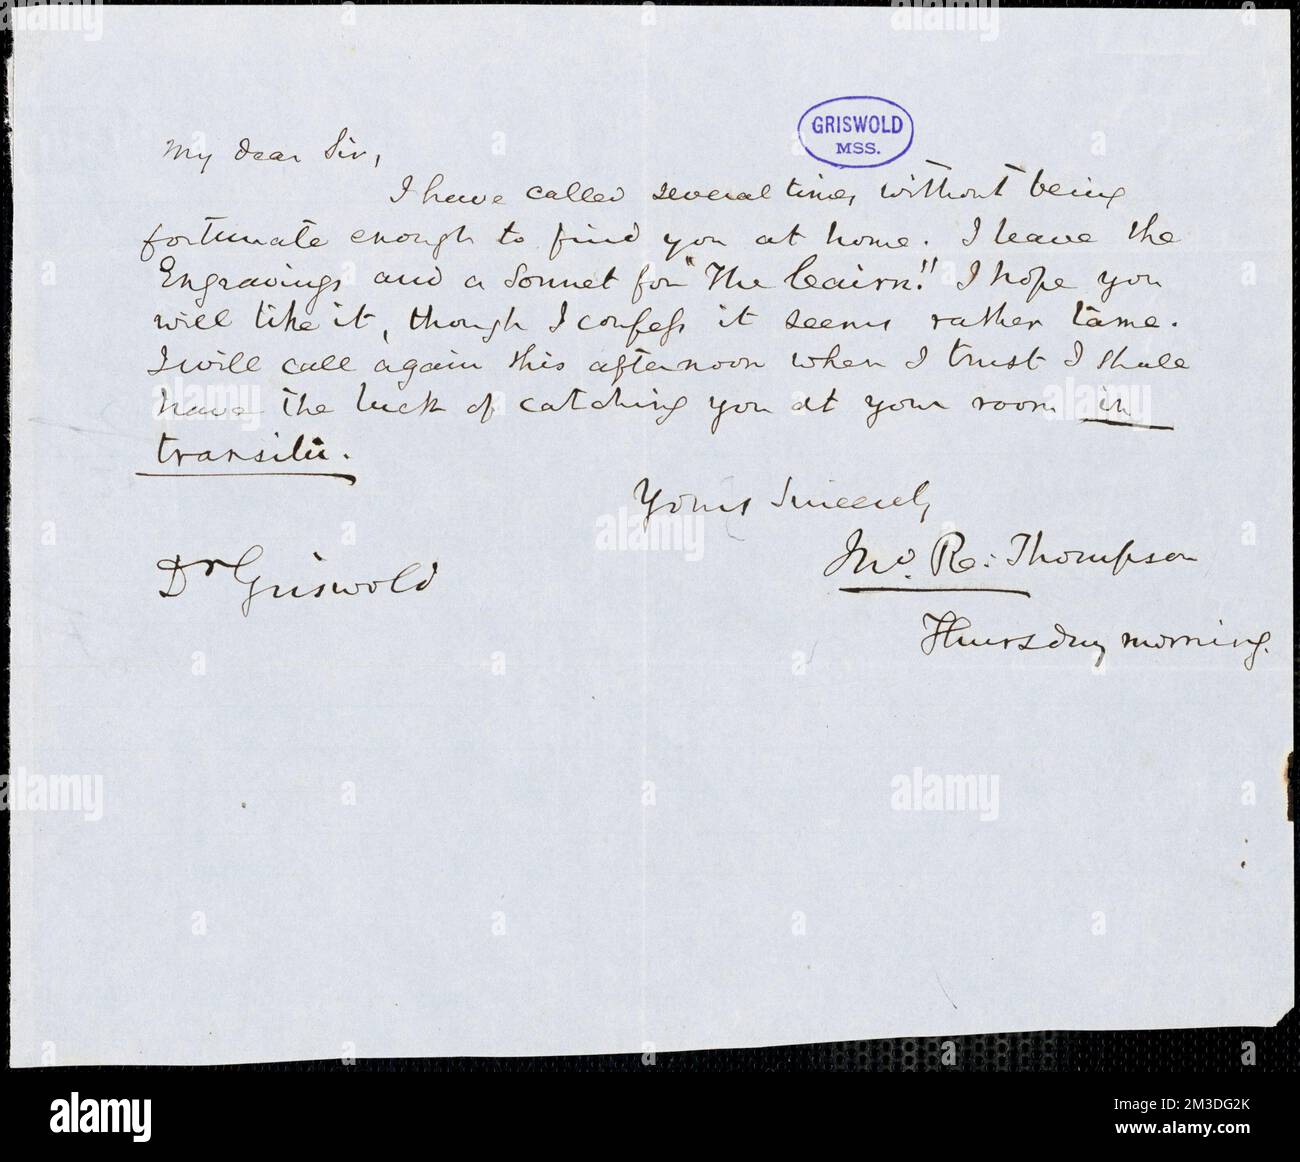 GRISWOLD
MSS.
My dear Sir,
I have called several times without being
fortunate enough to find you at home. I leave the
Engravings and a Sonnet for "The Cairn." I hope you
will like it, though I confess it seems rather tame.
I will call again this afternoon when I trust I shall
have the luck of catching you at your room in
transitu.
Yours Sincerely
Jno. R. Thompson
Dr Griswold
Thursday morning.
alamy
Image ID: 2M3DG2K
www.alamy.com